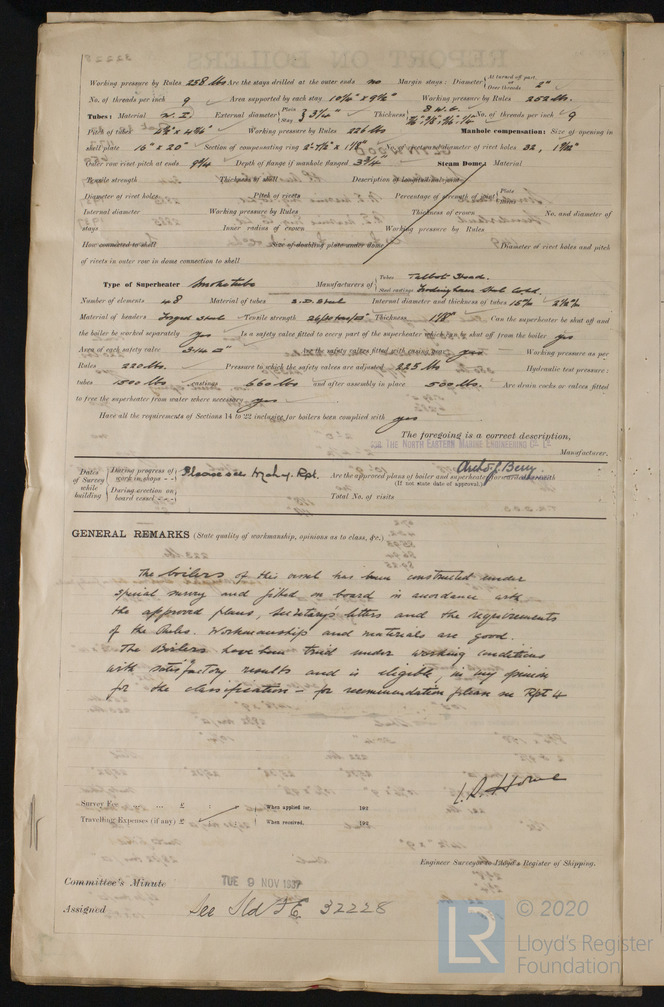 Working pressure by Rules 258 lbs Are the stays drilled at the outer ends no Margin stays: Diameter { At turned off part, or Over threads 2"
No. of threads per inch 9 Area supported by each stay 10 7/16" x 9 1/2" Working pressure by Rules 252 lbs.
Tubes: Material External diameter { Plain Stay } 3 1/4" Thickness { 8 W.G. No. of threads per inch 9
Pitch of tubes Working pressure by Rules 226 lbs Manhole compensation: Size of opening in
shell plate 16" x 20" Section of compensating ring No. of rivets and diameter of rivet holes 32,
Outer row rivet pitch at ends 9 3/4 Depth of flange if manhole flanged 3 3/4" Steam Dome: Material
Tensile strength Thickness of shell Description of longitudinal joint
Diameter of rivet holes Pitch of rivets Percentage of strength of joint { Plate Rivets
Internal diameter Working pressure by Rules Thickness of crown No. and diameter of
stays Inner radius of crown Working pressure by Rules
How connected to shell Size of doubling plate under dome Diameter of rivet holes and pitch
of rivets in outer row in dome connection to shell
Type of Superheater Smoketube Manufacturers of { Tubes Talbot Stead.
Steel castings Frodingham Steel Cold.
Number of elements 48 Material of tubes S.D. Steel Internal diameter and thickness of tubes
Material of headers Forged Steel Tensile strength Thickness 1 1/8" Can the superheater be shut off and
the boiler be worked separately yes Is a safety valve fitted to every part of the superheater which can be shut off from the boiler yes
Area of each safety valve 3.14 □" Are the safety valves fitted with easing gear yes Working pressure as per
Rules 220 lbs. Pressure to which the safety valves are adjusted 225 lbs Hydraulic test pressure:
tubes 1500 lbs castings 660 lbs and after assembly in place 500 lbs. Are drain cocks or valves fitted
to free the superheater from water where necessary yes
Have all the requirements of Sections 14 to 22 inclusive for boilers been complied with yes
The foregoing is a correct description,
FOR THE NORTH EASTERN MARINE ENGINEERING CO. LD.
Manufacturer.
Archd J. Berry
Dates of Survey while building { During progress of work in shops - - Please see Mchy. Rpt. Are the approved plans of boiler and superheater forwarded herewith
(If not state date of approval.)
During erection on board vessel - - - Total No. of visits
GENERAL REMARKS (State quality of workmanship, opinions as to class, &c.)
The boilers of this vessel has been constructed under
special survey and fitted on board in accordance with
the approved plans, secretary's letters and the requirements
of the Rules. Workmanship and materials are good.
The Boilers have been tried under working conditions
with satisfactory results and is eligible, in my opinion
for the classification - for recommendation please see Rpt 4
Survey Fee ... ... £ : : { When applied for, 192
Travelling Expenses (if any) £ : : When received, 192
Engineer Surveyor to Lloyd's Register of Shipping.
Committee's Minute TUE 9 NOV 1937
Assigned See Sld F.E. 32228
LR © 2020
Lloyd's Register
Foundation